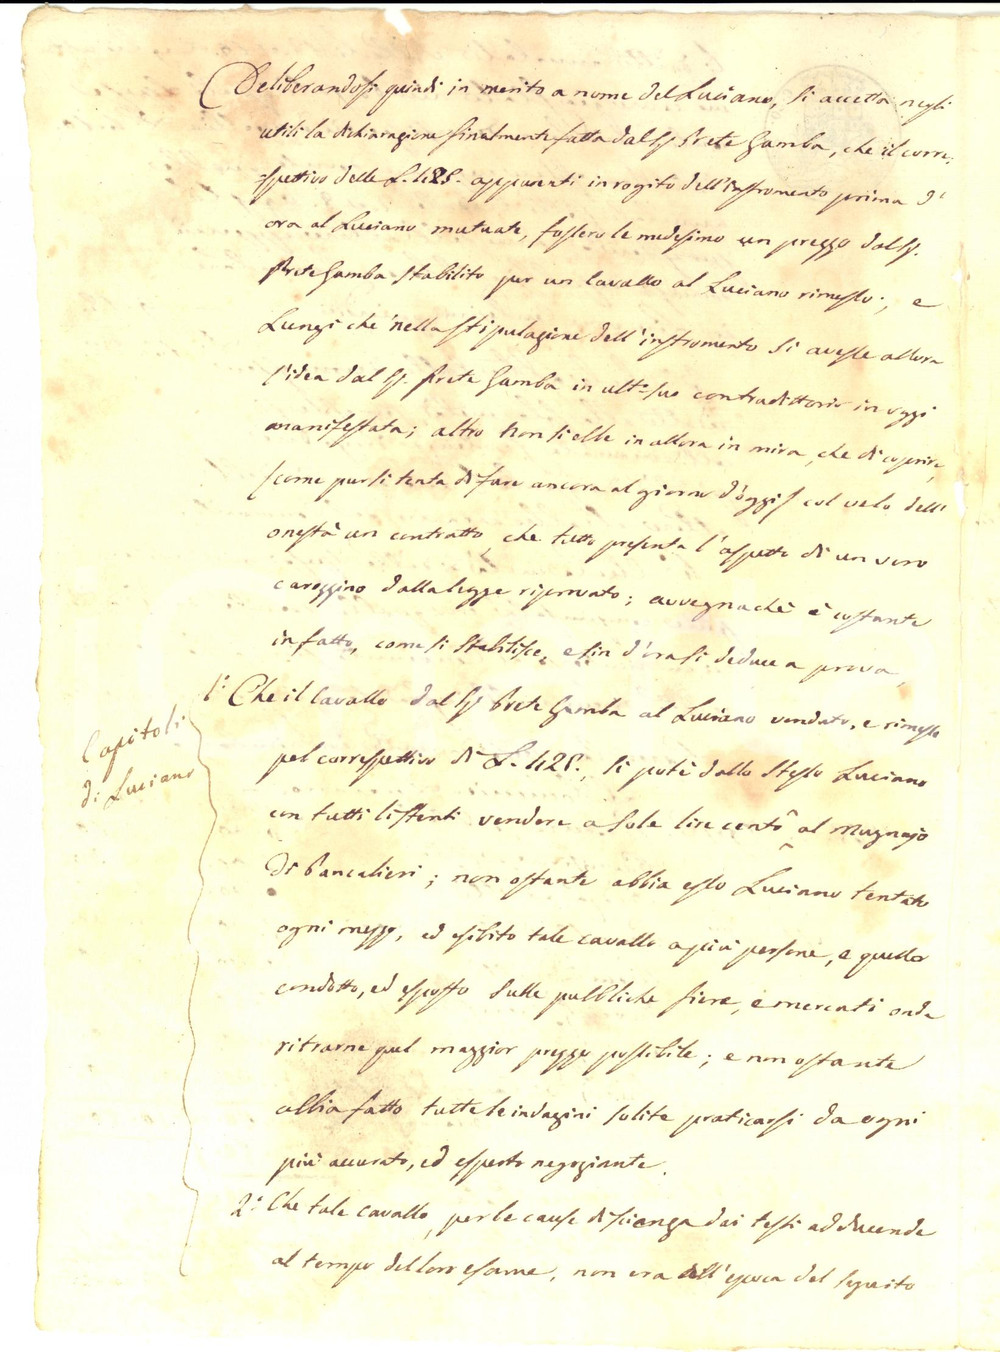 Deliberandosi quindi in merito a nome del Luciano, si accetta negli
utili la dichiarazione finalmente fatta dal Sr Prete Gamba, che il corre-
=spettivo delle L. 425. apparenti in rogito dell'instromento prima d'
ora al Luciano mutuate, fossero le medesime un prezzo dal Sr.
Prete Gamba stabilito per un Cavallo al Luciano rimesso; e
Lungi che nella stipulazione dell'instromento si avesse allora
l'idea dal Sr. Prete Gamba in ultº suo contradittorio in oggi
manifestata; altro non si ebbe in allora in mira, che di coprire
/come pur si tenta di fare ancora al giorno d'oggi/ col velo dell'
onestà un contratto, che tutto presenta l'aspetto di un vero
dalla legge riprovato; avvegnachè è costante
in fatto, come si stabilisce, e sin d'ora si deduce a prova,
Capitoli
di Luciano
1º Che il Cavallo dal Sr Prete Gamba al Luciano venduto, e rimesso
pel correspettivo di L. 425., si potè dallo stesso Luciano
con tutti listenti vendere a sole lire cento al Mugnajo
di Pancalieri; non ostante abbia esso Luciano tentato
ogni mezzo, ed esibito tale cavallo a più persone, e quello
condotto, ed esposto sulle pubbliche fiere, e mercati onde
ritrarne quel maggior prezzo possibile; e non ostante
abbia fatto tutte le indagini solite praticarsi da ogni
più accurato, ed esperto negoziante.
2º Che tale Cavallo, per le cause di scienza dai testi adducende
al tempo del loro esame, non era all'epoca del seguito